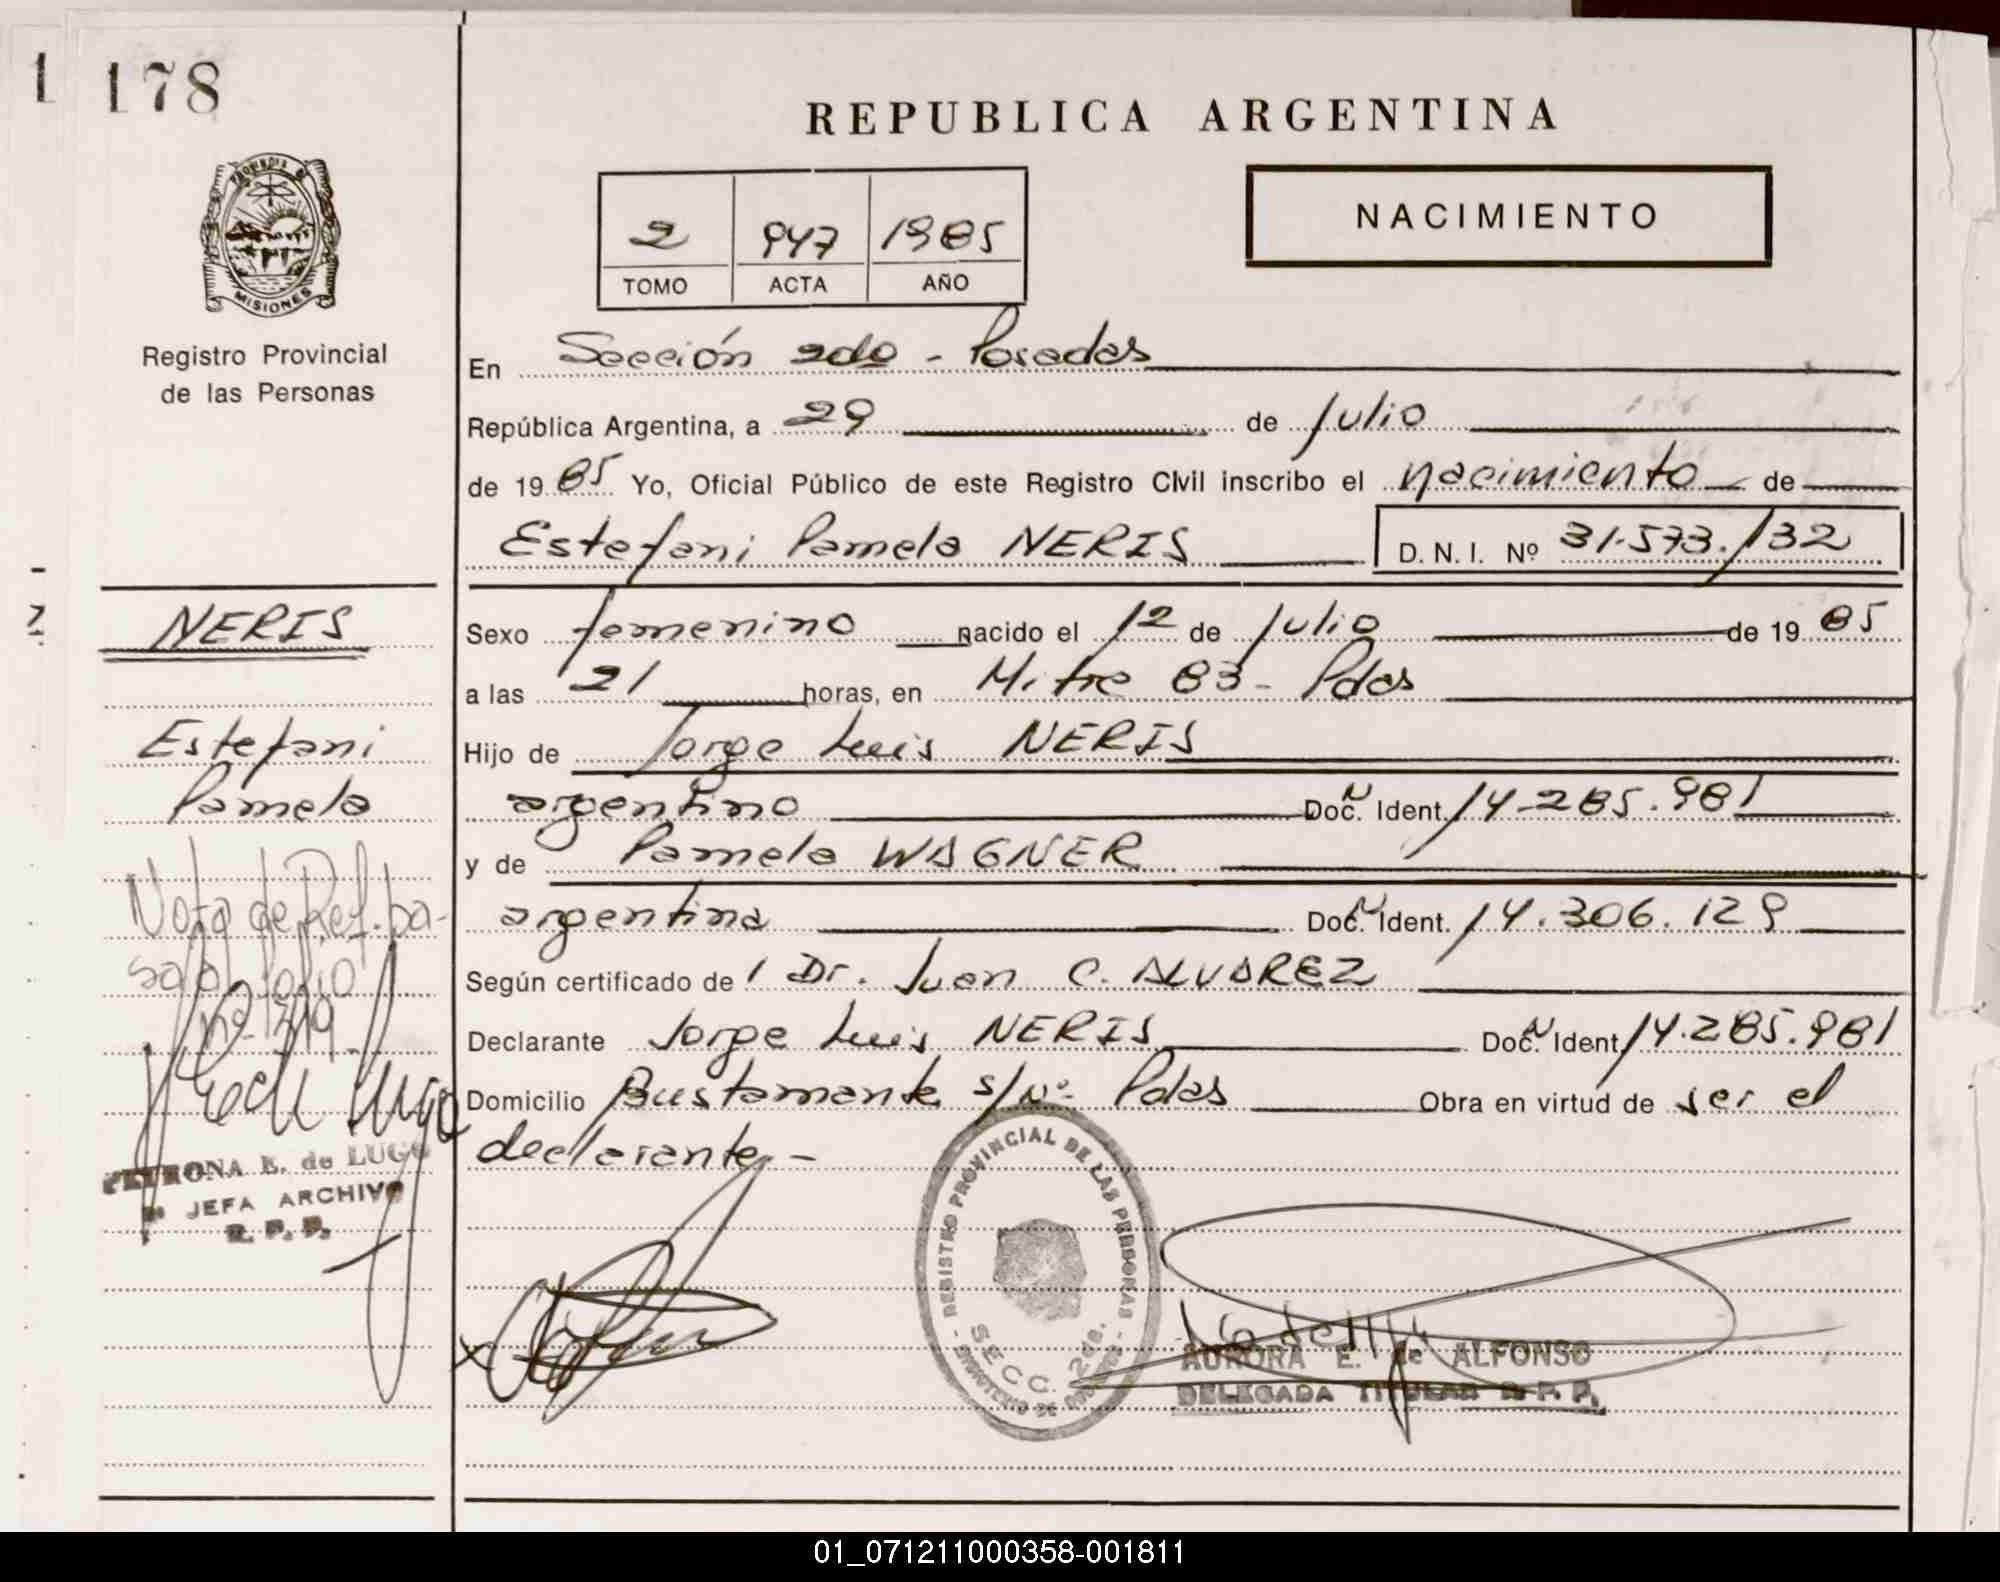 1 178
REPUBLICA ARGENTINA
NACIMIENTO
2 947 1985
TOMO ACTA AÑO
PROVINCIA DE
MISIONES
Registro Provincial
de las Personas
En Sección 2da - Posadas
República Argentina, a 29 de Julio
de 1985 Yo, Oficial Público de este Registro Civil inscribo el nacimiento de
Estefani Pamela NERIS D.N.I. Nº 31.573.132
NERIS
Estefani
Pamela
Nota de Ref. pa-
sa al folio
nº 319
PETRONA E. de LUGO
JEFA ARCHIVO
R. P. P.
Sexo femenino nacido el 12 de Julio de 1985
a las 21 horas, en Mitre 83 - Pdas
Hijo de Jorge Luis NERIS
argentino Doc. N Ident. 14.285.981
y de Pamela WAGNER
argentina Doc. N Ident. 14.306.129
Según certificado de l Dr. Juan C. ALVAREZ
Declarante Jorge Luis NERIS Doc. N Ident. 14.285.981
Domicilio Bustamante s/Nº Pdas Obra en virtud de ser el
declarante -
REGISTRO PROVINCIAL DE LAS PERSONAS
SECC. 2da.
AURORA E. de ALFONSO
DELEGADA TITULAR R. P. P.
01_071211000358-001811